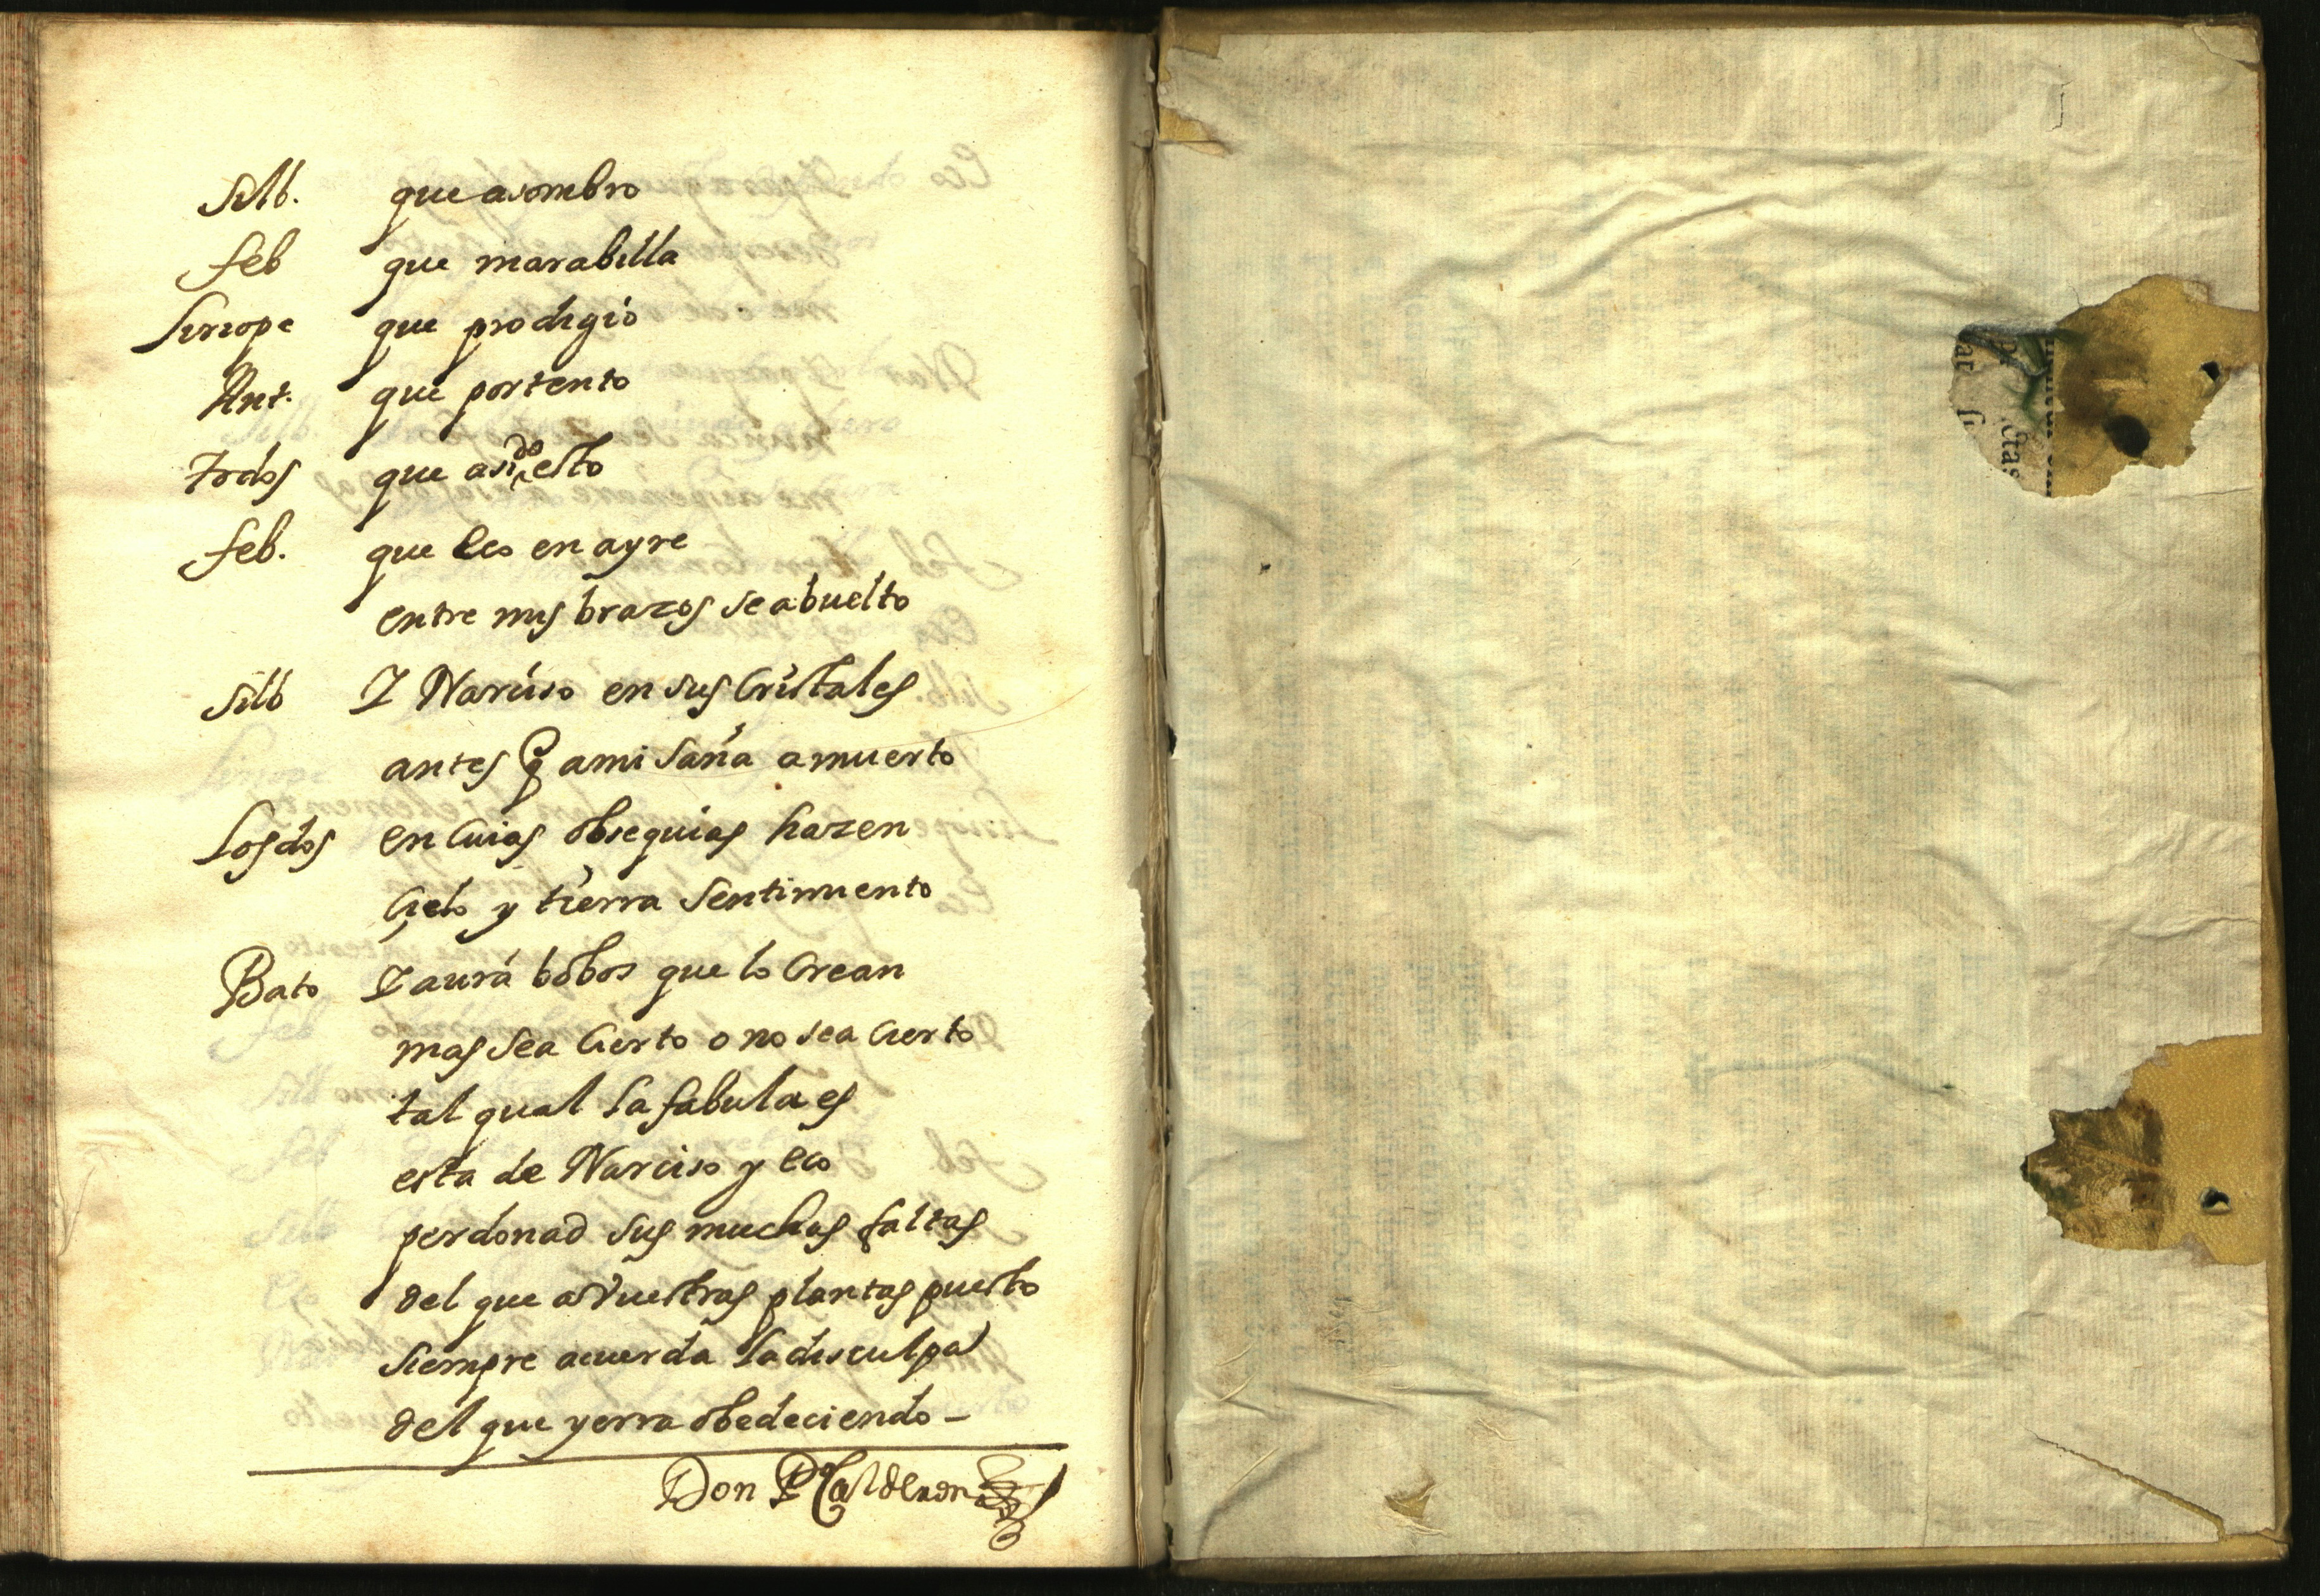 Silb. que asombro
feb que marabilla
Siriope que prodigio
Ant. que portento
todos que asido esto
feb. que Eco en ayre
entre mis brazos se abuelto
Silb I Narciso en sus Cristales
antes q ami saña a muerto
Los dos en Cuias obsequias hazen
Çielo y tierra sentimiento
Bato I aurá bobos que lo Crean
mas sea Cierto o no sea Cierto
tal qual la fabula es
esta de Narciso y Eco
perdonad sus muchas faltas
del que a Vuestras plantas puesto
siempre acuerda la disculpa
del que yerra obedeciendo -
Don P Calderon
ar
ctas